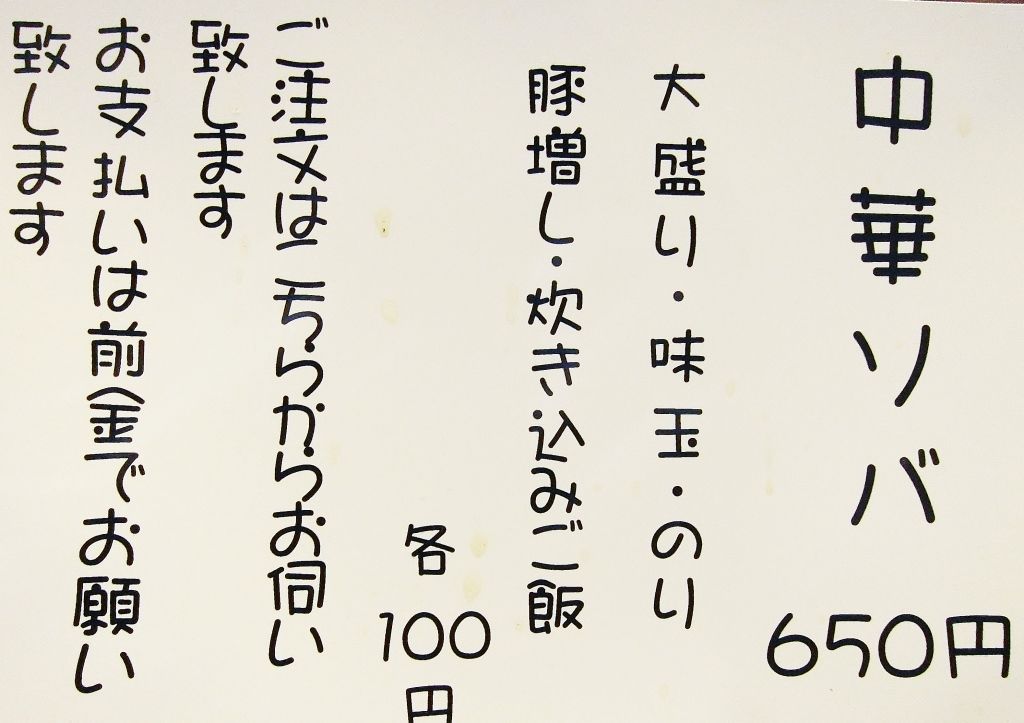 中華ソバ 650円
大盛り・味玉・のり
豚増し・炊き込みご飯
各100円
ご注文はこちらからお伺い
致します
お支払いは前金でお願い
致します